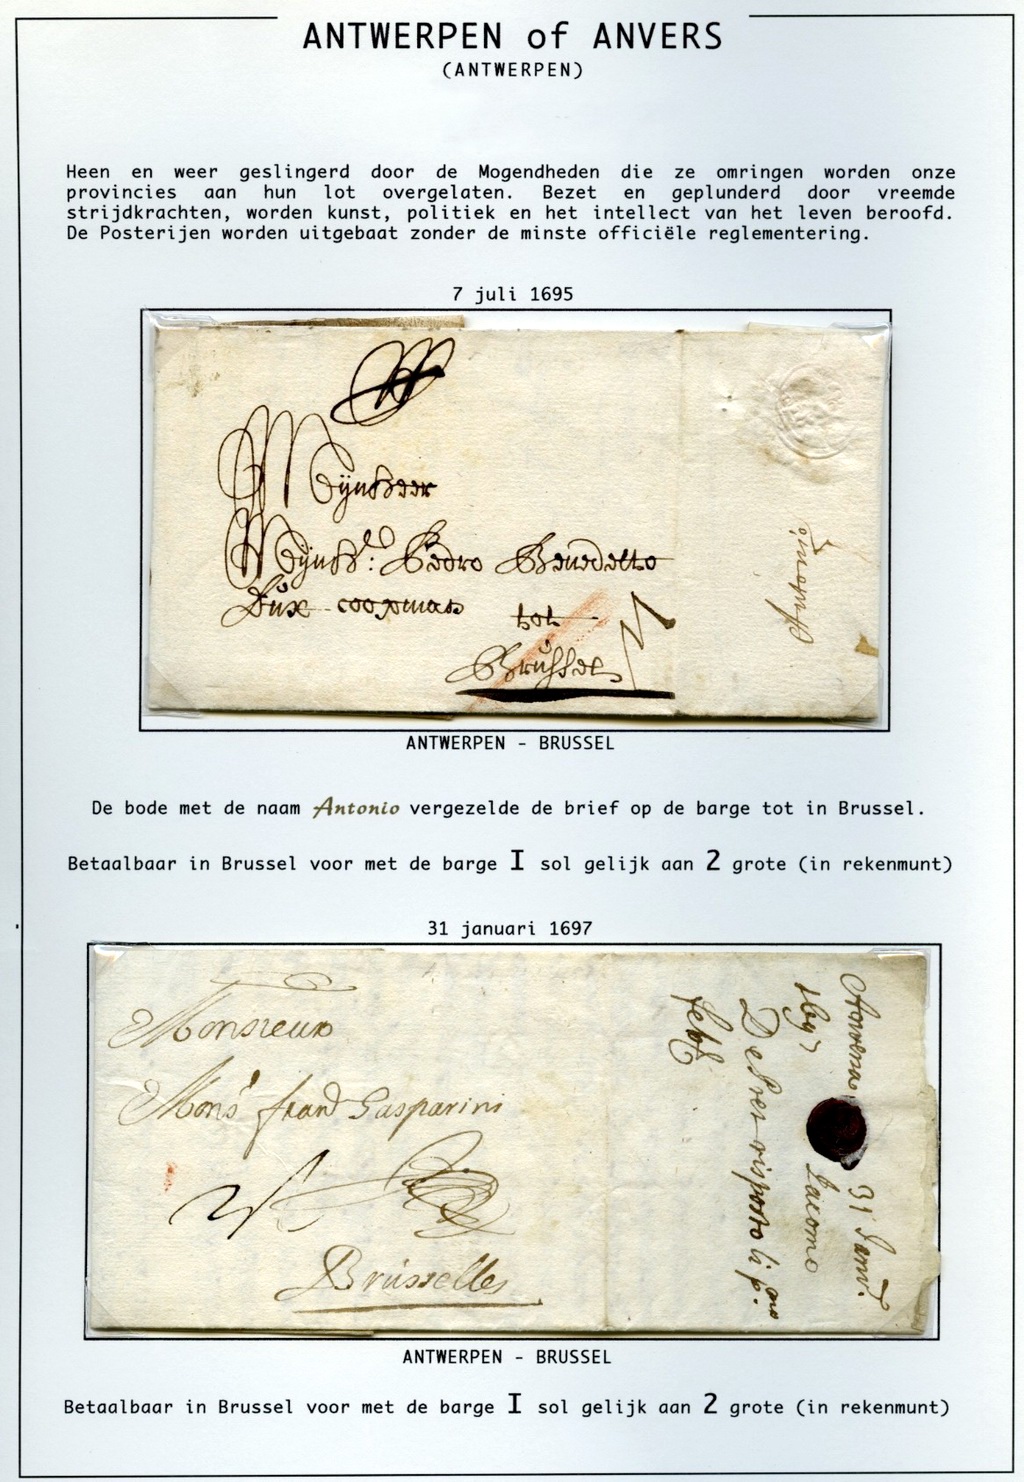 ANTWERPEN of ANVERS
(ANTWERPEN)
Heen en weer geslingerd door de Mogendheden die ze omringen worden onze
provincies aan hun lot overgelaten. Bezet en geplunderd door vreemde
strijdkrachten, worden kunst, politiek en het intellect van het leven beroofd.
De Posterijen worden uitgebaat zonder de minste officiële reglementering.
7 juli 1695
Mÿnheer
Mÿnhr: Pedro Benedetto
Dúx coopman tot
Brússel
ANTWERPEN - BRUSSEL
De bode met de naam Antonio vergezelde de brief op de barge tot in Brussel.
Betaalbaar in Brussel voor met de barge I sol gelijk aan 2 grote (in rekenmunt)
31 januari 1697
Monsieur
Mons Gasparini
Brússelles
Anversa 31
1697 Giacomo
risposto li
ANTWERPEN - BRUSSEL
Betaalbaar in Brussel voor met de barge I sol gelijk aan 2 grote (in rekenmunt)